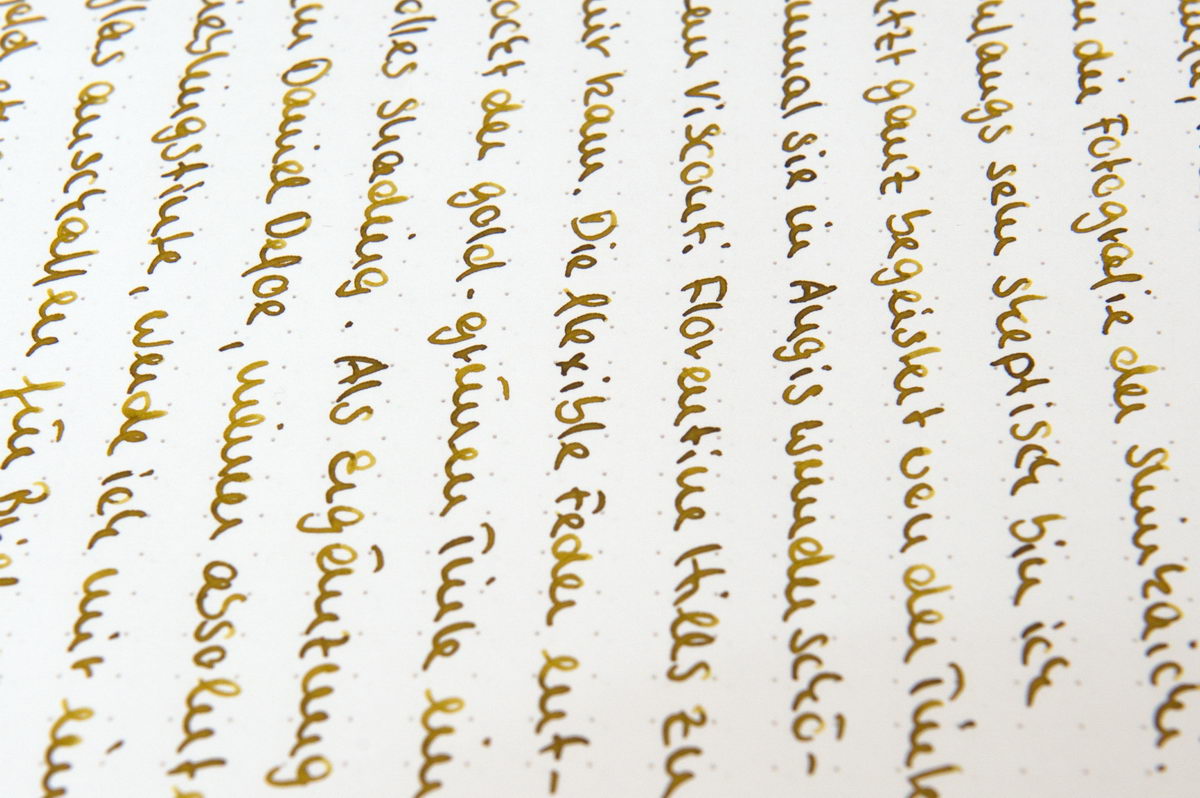 die Fotografie der Shinkaichi.
nfangs sehr skeptisch bin ich
tzt ganz begeistert von der Tint
nmal sie in Augis wunderschö-
em Visconti Florentine Hills zu
mir kam. Die flexible Feder ent-
ockt der gold-grünen Tinte ein
olles Shading. Als Ergänzung
um Daniel Defoe, meiner absolut
ieblingstinte, werde ich mir ein
glas anschaffen für